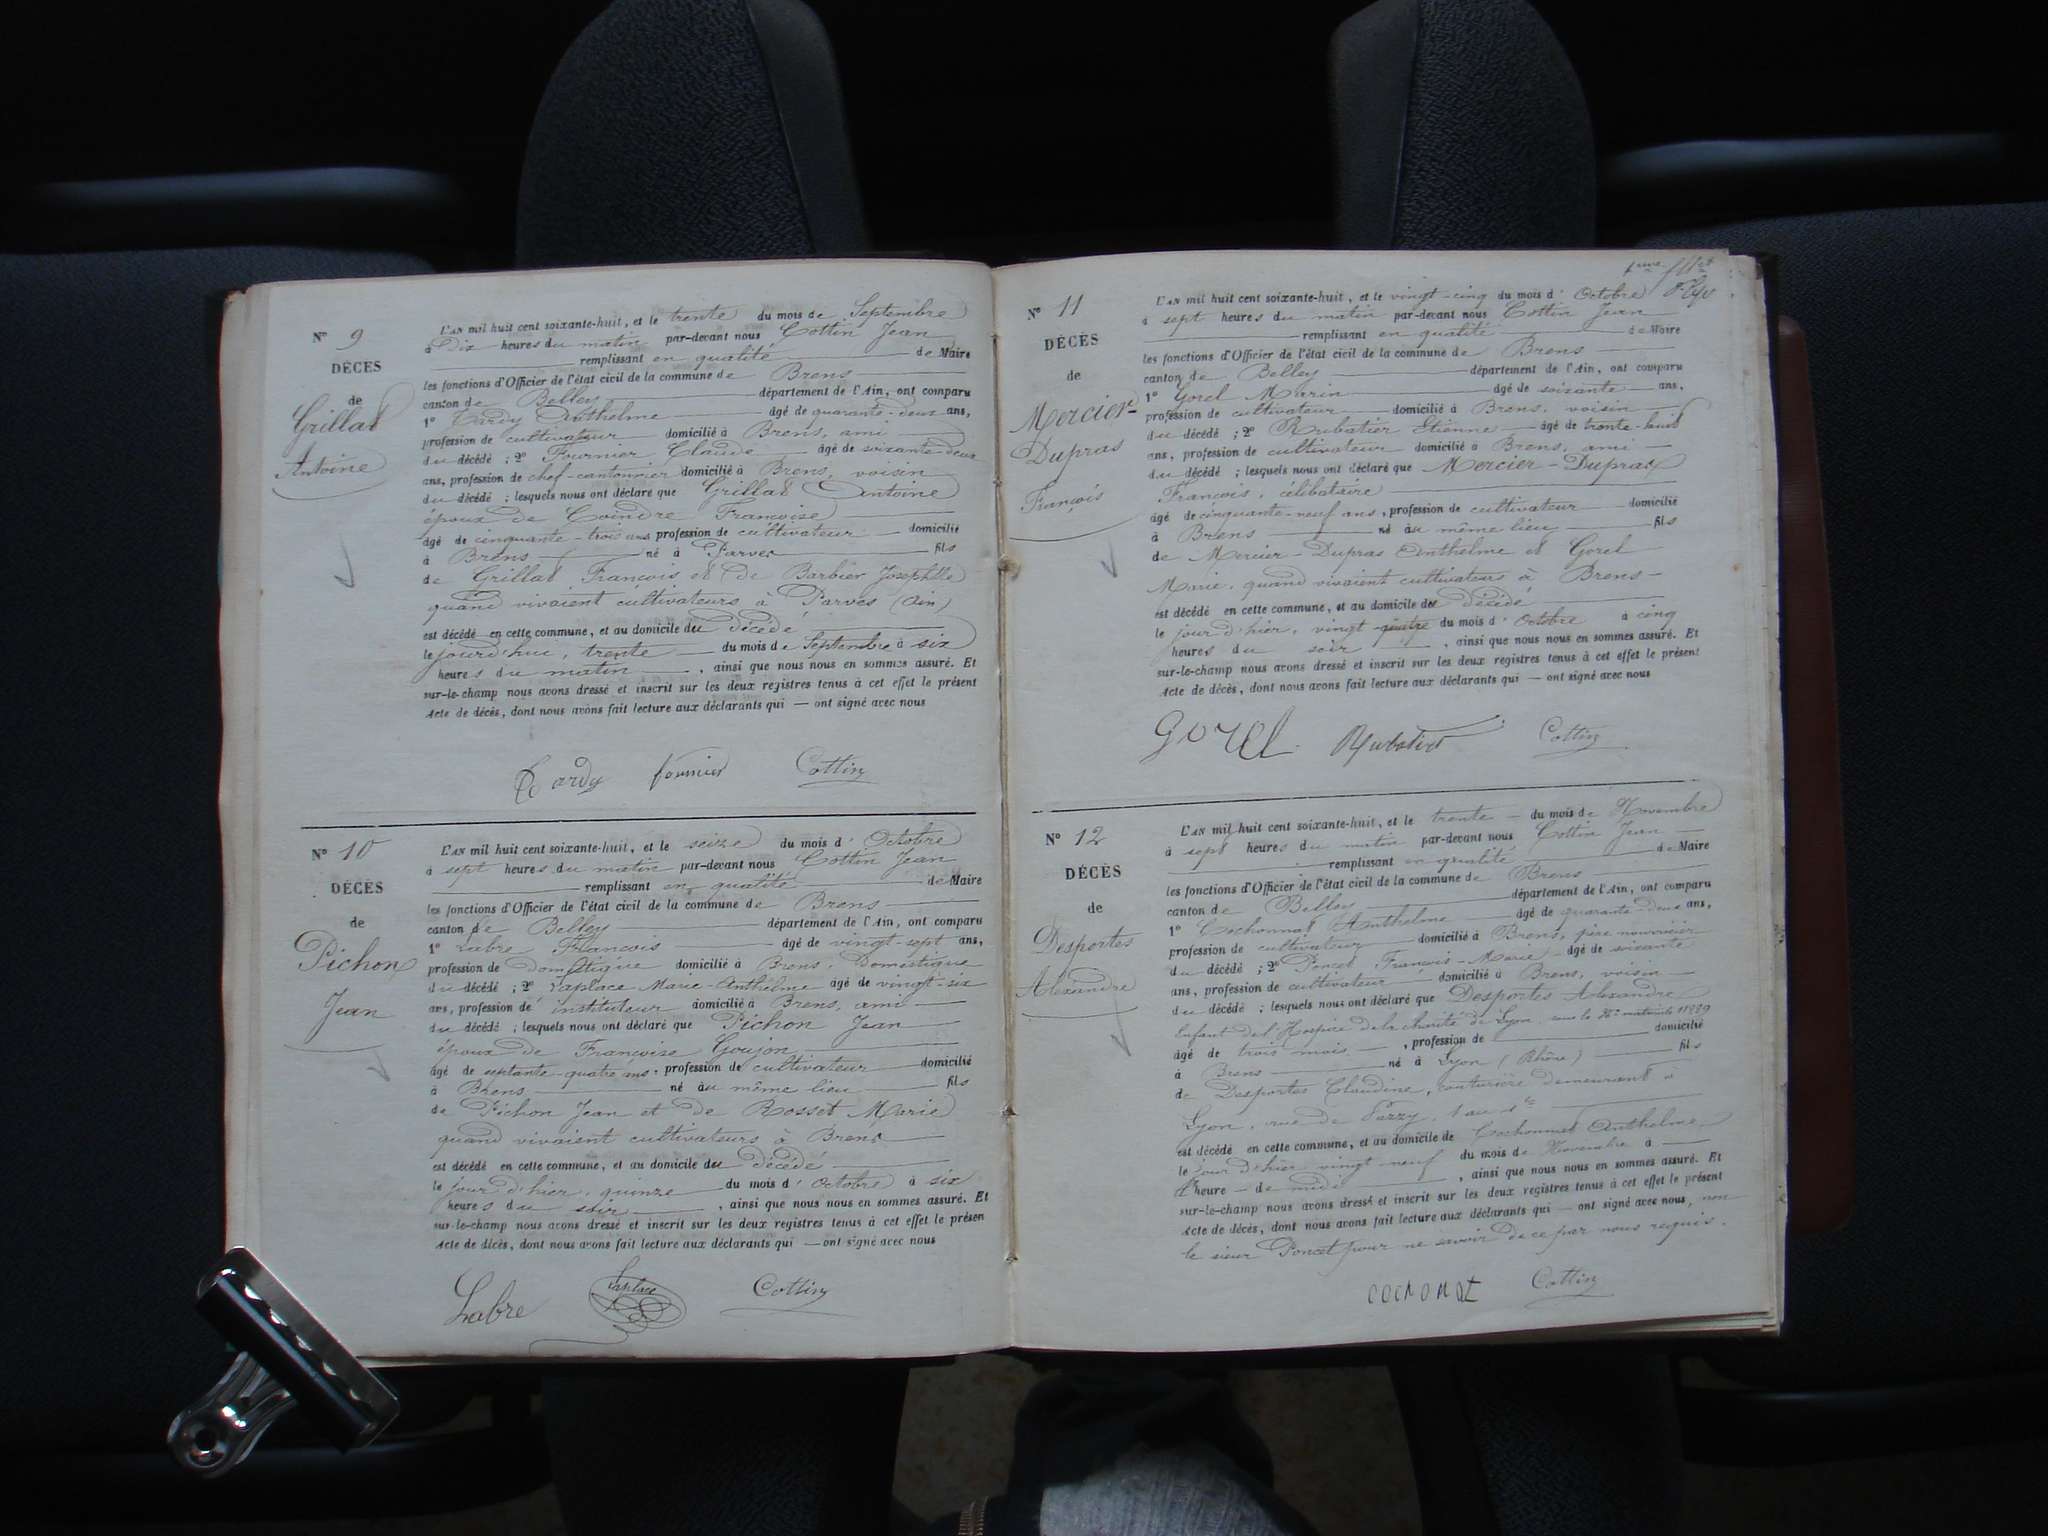 N° 9
DÉCÈS
de
Grillat
Antoine
L'AN mil huit cent soixante-huit, et le trente du mois de Septembre
à Dix heures du matin par-devant nous Cottin Jean
remplissant en qualité de Maire
les fonctions d'Officier de l'état civil de la commune de Brens
canton de Belley département de l'Ain, ont comparu
1° Tardy Anthelme âgé de quarante-deux ans,
profession de cultivateur domicilié à Brens, ami
du décédé ; 2° Fournier Claude âgé de soixante-deux
ans, profession de chef-cantonnier domicilié à Brens, voisin
du décédé ; lesquels nous ont déclaré que Grillat Antoine
époux de Coindre Françoise
âgé de cinquante-trois ans profession de cultivateur domicilié
à Brens né à Parves fils
de Grillat François et de Barbier Josephte
quand vivaient cultivateurs à Parves (Ain)
est décédé en cette commune, et au domicile du décédé
le jourd'hui, trente du mois de Septembre à six
heures du matin , ainsi que nous nous en sommes assuré. Et
sur-le-champ nous avons dressé et inscrit sur les deux registres tenus à cet effet le présent
Acte de décès, dont nous avons fait lecture aux déclarants qui — ont signé avec nous
Tardy fournier Cottin
N° 10
DÉCÈS
de
Pichon
Jean
L'AN mil huit cent soixante-huit, et le seize du mois d' Octobre
à sept heures du matin par-devant nous Cottin Jean
remplissant en qualité de Maire
les fonctions d'Officier de l'état civil de la commune de Brens
canton de Belley département de l'Ain, ont comparu
1° Labre François âgé de vingt-sept ans,
profession de domestique domicilié à Brens, Domestique
du décédé ; 2° Laplace Marie-Anthelme âgé de vingt-six
ans, profession d' instituteur domicilié à Brens, ami
du décédé ; lesquels nous ont déclaré que Pichon Jean
époux de Françoise Goujon
âgé de septante-quatre ans, profession de cultivateur domicilié
à Brens né au même lieu fils
de Pichon Jean et de Rosset Marie
quand vivaient cultivateurs à Brens
est décédé en cette commune, et au domicile du décédé
le jour d'hier, quinze du mois d' Octobre à six
heures du soir , ainsi que nous nous en sommes assuré. Et
sur-le-champ nous avons dressé et inscrit sur les deux registres tenus à cet effet le présen
Acte de décès, dont nous avons fait lecture aux déclarants qui — ont signé avec nous
Labre Laplace Cottin
N° 11
DÉCÈS
de
Mercier-
Dupras
François
L'AN mil huit cent soixante-huit, et le vingt-cinq du mois d' Octobre
à sept heures du matin par-devant nous Cottin Jean
remplissant en qualité de Maire
les fonctions d'Officier de l'état civil de la commune de Brens
canton de Belley département de l'Ain, ont comparu
1° Gorel Marin âgé de soixante ans,
profession de cultivateur domicilié à Brens, voisin
du décédé ; 2° Rubatier Etienne âgé de trente-huit
ans, profession de cultivateur domicilié à Brens, ami
du décédé ; lesquels nous ont déclaré que Mercier-Dupras
François, célibataire
âgé de cinquante-neuf ans, profession de cultivateur domicilié
à Brens né au même lieu fils
de Mercier-Dupras Anthelme et Gorel
Marie, quand vivaient cultivateurs à Brens
est décédé en cette commune, et au domicile du décédé
le jour d'hier, vingt-quatre du mois d' Octobre à cinq
heures du soir , ainsi que nous nous en sommes assuré. Et
sur-le-champ nous avons dressé et inscrit sur les deux registres tenus à cet effet le présent
Acte de décès, dont nous avons fait lecture aux déclarants qui — ont signé avec nous
Gorel Rubatier Cottin
N° 12
DÉCÈS
de
Desportes
Alexandre
L'AN mil huit cent soixante-huit, et le trente du mois de Novembre
à sept heures du matin par-devant nous Cottin Jean
remplissant en qualité de Maire
les fonctions d'Officier de l'état civil de la commune de Brens
canton de Belley département de l'Ain, ont comparu
1° Cochonnat Anthelme âgé de quarante-deux ans,
profession de cultivateur domicilié à Brens, père nourricier
du décédé ; 2° Poncet François-Marie âgé de soixante
ans, profession de cultivateur domicilié à Brens, voisin
du décédé ; lesquels nous ont déclaré que Desportes Alexandre
Enfant de l'Hospice de la charité de Lyon, sous le N° matricule 11889
âgé de trois mois , profession de domicilié
à Brens né à Lyon (Rhône) fils
de Desportes Claudine, couturière demeurant à
Lyon, rue de 1 au
est décédé en cette commune, et au domicile de Cochonnat Anthelme
le jour d'hier vingt-neuf du mois de Novembre à
l'heure de midi , ainsi que nous nous en sommes assuré. Et
sur-le-champ nous avons dressé et inscrit sur les deux registres tenus à cet effet le présent
Acte de décès, dont nous avons fait lecture aux déclarants qui — ont signé avec nous, non
le sieur Poncet pour ne savoir de ce par nous requis.
cochonat Cottin